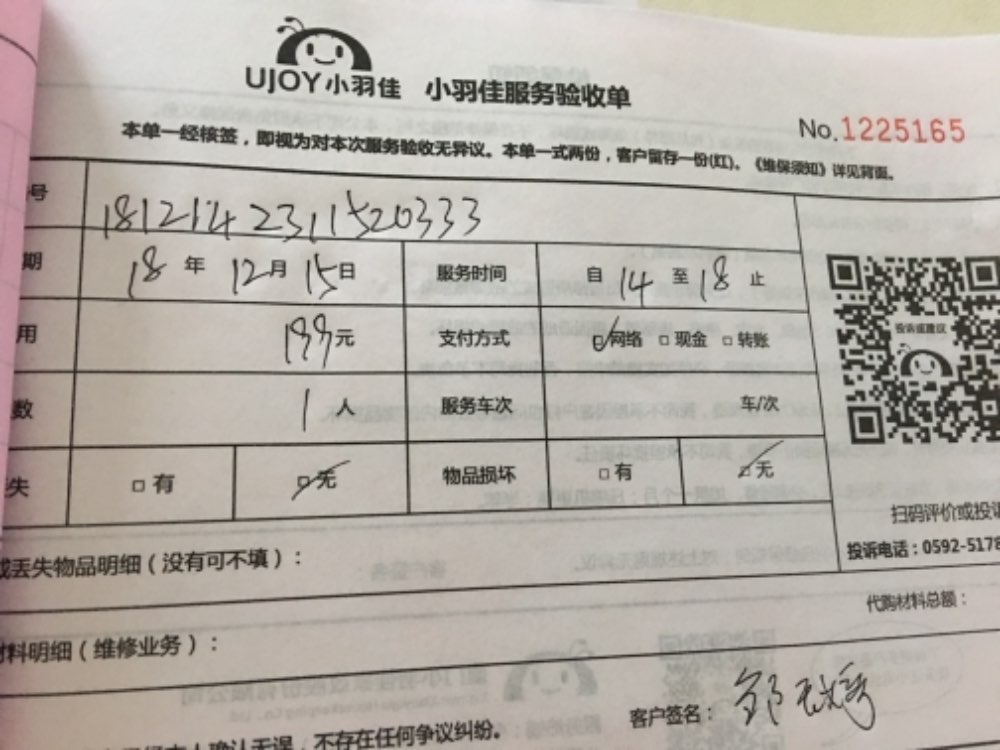 UJOY小羽佳 小羽佳服务验收单
No.1225165
本单一经核签，即视为对本次服务验收无异议。本单一式两份，客户留存一份(红)。《维保须知》详见背面。
号 1812142311520333
期 18年12月15日 服务时间 自14至18止
用 199元 支付方式 网络 现金 转账
数 1人 服务车次 车/次
失 有 无 物品损坏 有 无
投诉或建议
扫码评价或投诉
投诉电话：0592-5178
或丢失物品明细（没有可不填）：
代购材料总额：
材料明细（维修业务）：
客户签名：
人确认无误，不存在任何争议纠纷。